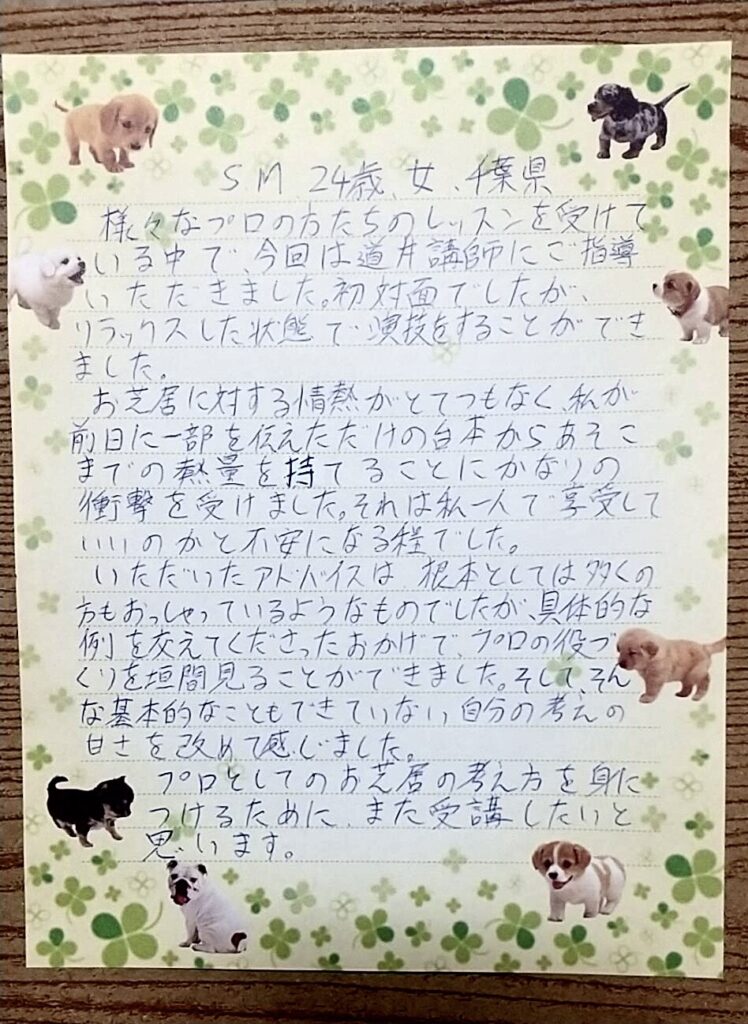 SM、24歳、女、千葉県
様々なプロの方たちのレッスンを受けて
いる中で、今回は道井講師にご指導
いただきました。初対面でしたが、
リラックスした状態で演技をすることができ
ました。
お芝居に対する情熱がとてつもなく、私が
前日に一部を伝えただけの台本からあそこ
までの熱量を持てることにかなりの
衝撃を受けました。それは私一人で享受して
いいのかと不安になる程でした。
いただいたアドバイスは、根本としては多くの
方もおっしゃっているようなものでしたが、具体的な
例を交えてくださったおかげで、プロの役づ
くりを垣間見ることができました。そして、そん
な基本的なこともできていない自分の考えの
甘さを改めて感じました。
プロとしてのお芝居の考え方を身に
つけるために、また受講したいと
思います。